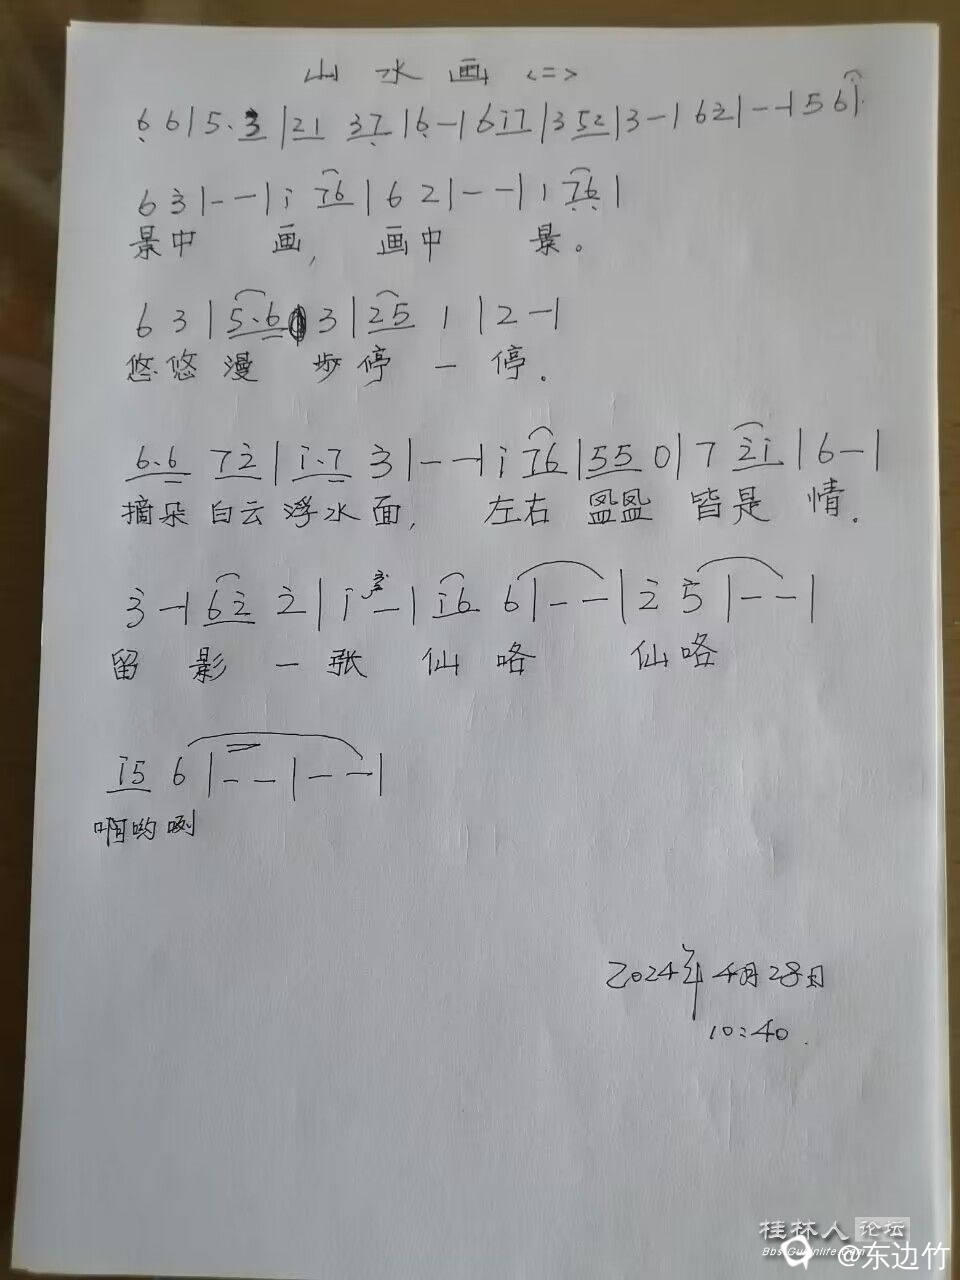 山水画<二>
6 6|5.3|21 37|6-|6i7|352|3-|62|--|56i
6 3|--|i i6|6 2|--|i 76|
景中 画, 画中 景。
6 3|5.6 3|25 1|2-|
悠悠漫 步停 一 停.
6.6 7 2|i.7 3|--|i i6|55 0|7 2i|6-|
摘朵白云浮水面, 左右 皆是 情.
3-|62 2|i 3-|i6 6|--|2 5|--|
留 影 一张 仙咯 仙咯
i5 6|--|--|
啊哟咧
2024年4月28日
10:40.
桂林人论坛
Bbs.Guilinlife.Com
@东边竹